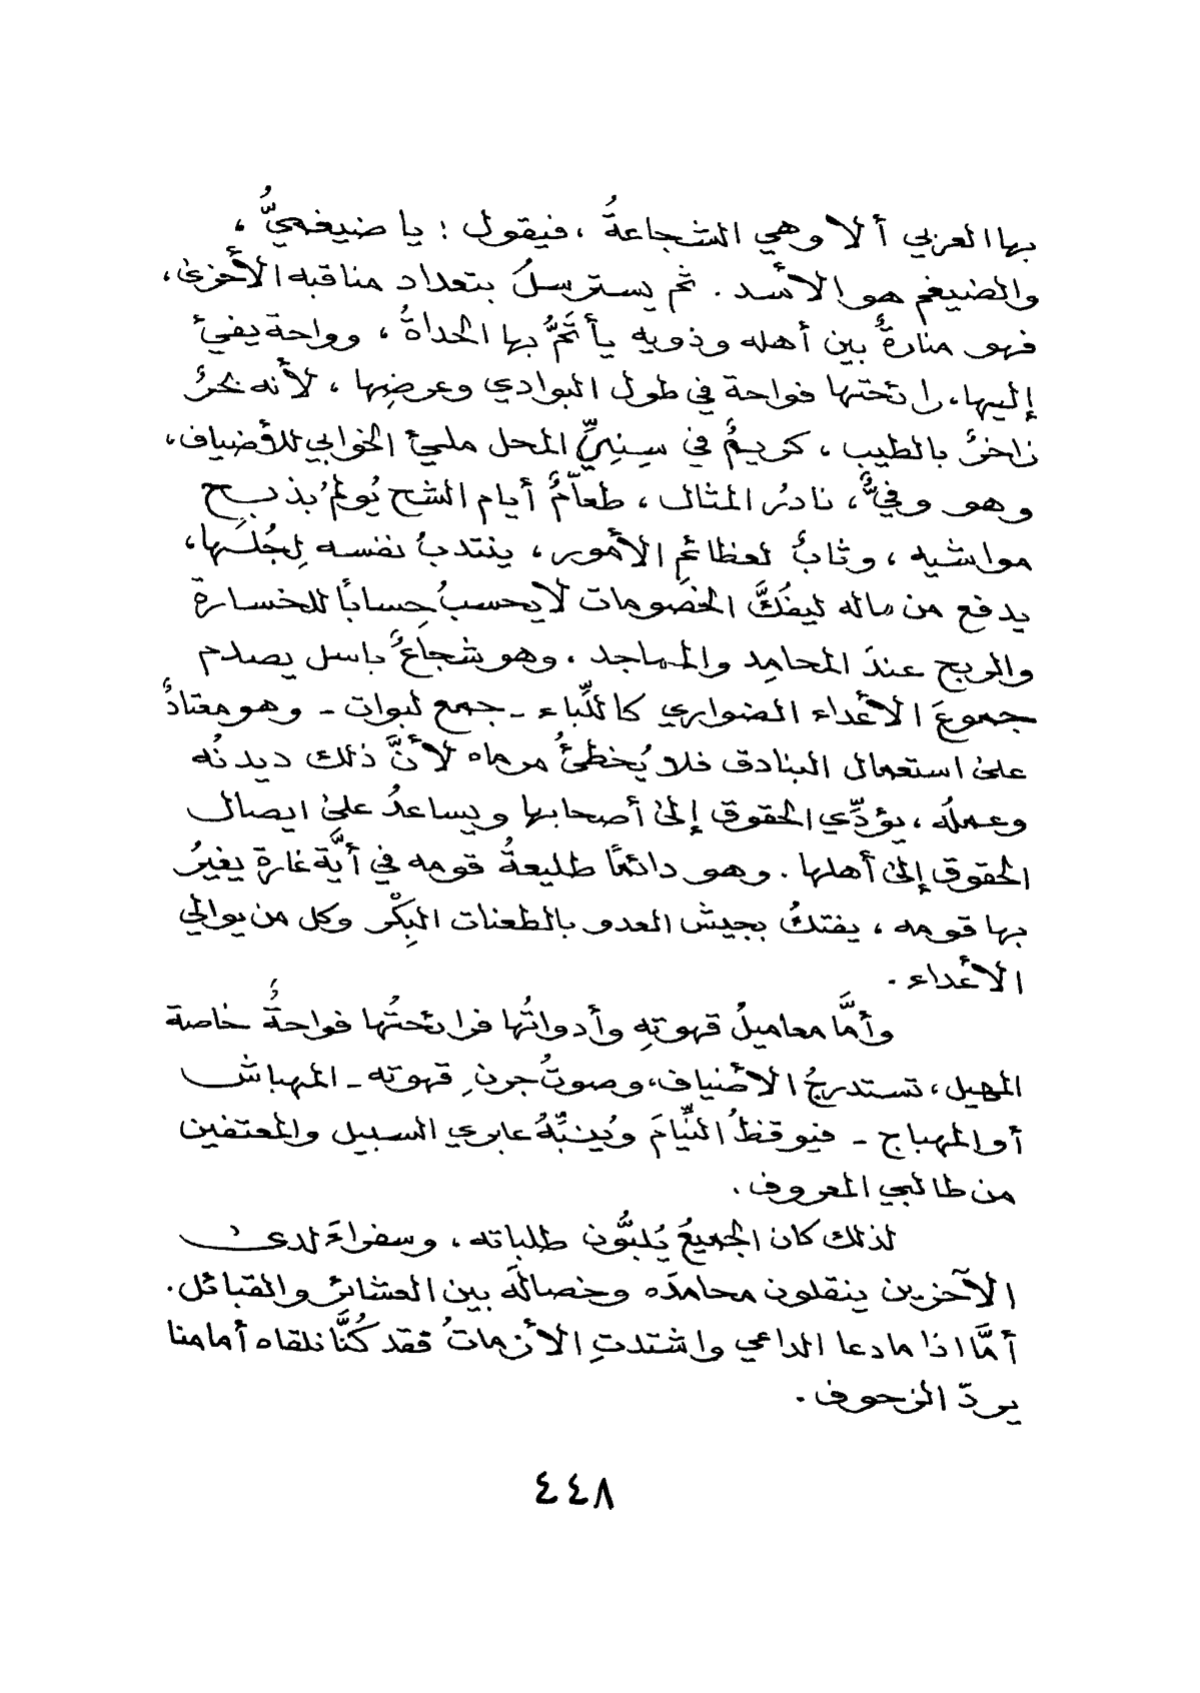 بها العربي ألا وهي الشجاعةُ ، فيقول : يا ضيغميُّ ،
والضيغم هو الأسد . ثم يسترسلُ بتعداد مناقبه الأُخرى ،
فهو منارةٌ بين أهله وذويه يأتَمُّ بها الحداةُ ، وواحة يفيءُ
إليها، رائحتها فواحة في طول البوادي وعرضِها ، لأنه بحرٌ
زاخرٌ بالطيب ، كريمٌ في سِنِيِّ المحل مليءُ الخوابي للأضياف ،
وهو وفيٌّ ، نادرُ المثال ، طعاّمٌ أيام الشح يُولمُ بذبح
مواشيه ، وثابٌ لعظائم الأُمور ، ينتدبُ نفسه لِجُلِّها ،
يدفع من ماله ليفُكَّ الخصومات لا يحسبُ حِساباً للخسارة
والربح عندَ المحامِد والمماجد ، وهو شجاعٌ باسل يصدم
جموعَ الأعداء الضواري كاللِّباء - جمع لبوات - وهو معتادٌ
على استعمال البنادق فلا يُخطئُ مرماه لأنَّ ذلك ديدنُه
وعملُه ، يؤدِّي الحقوق إلى أصحابها ويساعدُ على ايصال
الحقوق إلى أهلها . وهو دائماً طليعةُ قومه في أيَّة غارةٍ يغيرُ
بها قومه ، يفتكُ بجيش العدو بالطعنات البِكْر وكل من يوالي
الأعداء .
وأمَّا معاميلُ قهوتهِ وأدواتُها فرائحتُها فواحةٌ خاصة
المهيل ، تستدرجُ الأضياف ، وصوتُ جرنِ قهوته - المهباش
أو المهباج - فيوقظُ النِّيامَ ويُنبِّهُ عابري السبيل والمعتفين
من طالبي المعروف .
لذلك كان الجميعُ يُلبُّون طلباته ، وسفراءَ لدى
الآخرين ينقلون محامدَه وخصالَه بين العشائر والقبائل .
أمَّا اذا ما دعا الداعي واشتدتِ الأزماتُ فقد كُنَّا نلقاه أمامنا
يردّ الزحوف .
٤٤٨